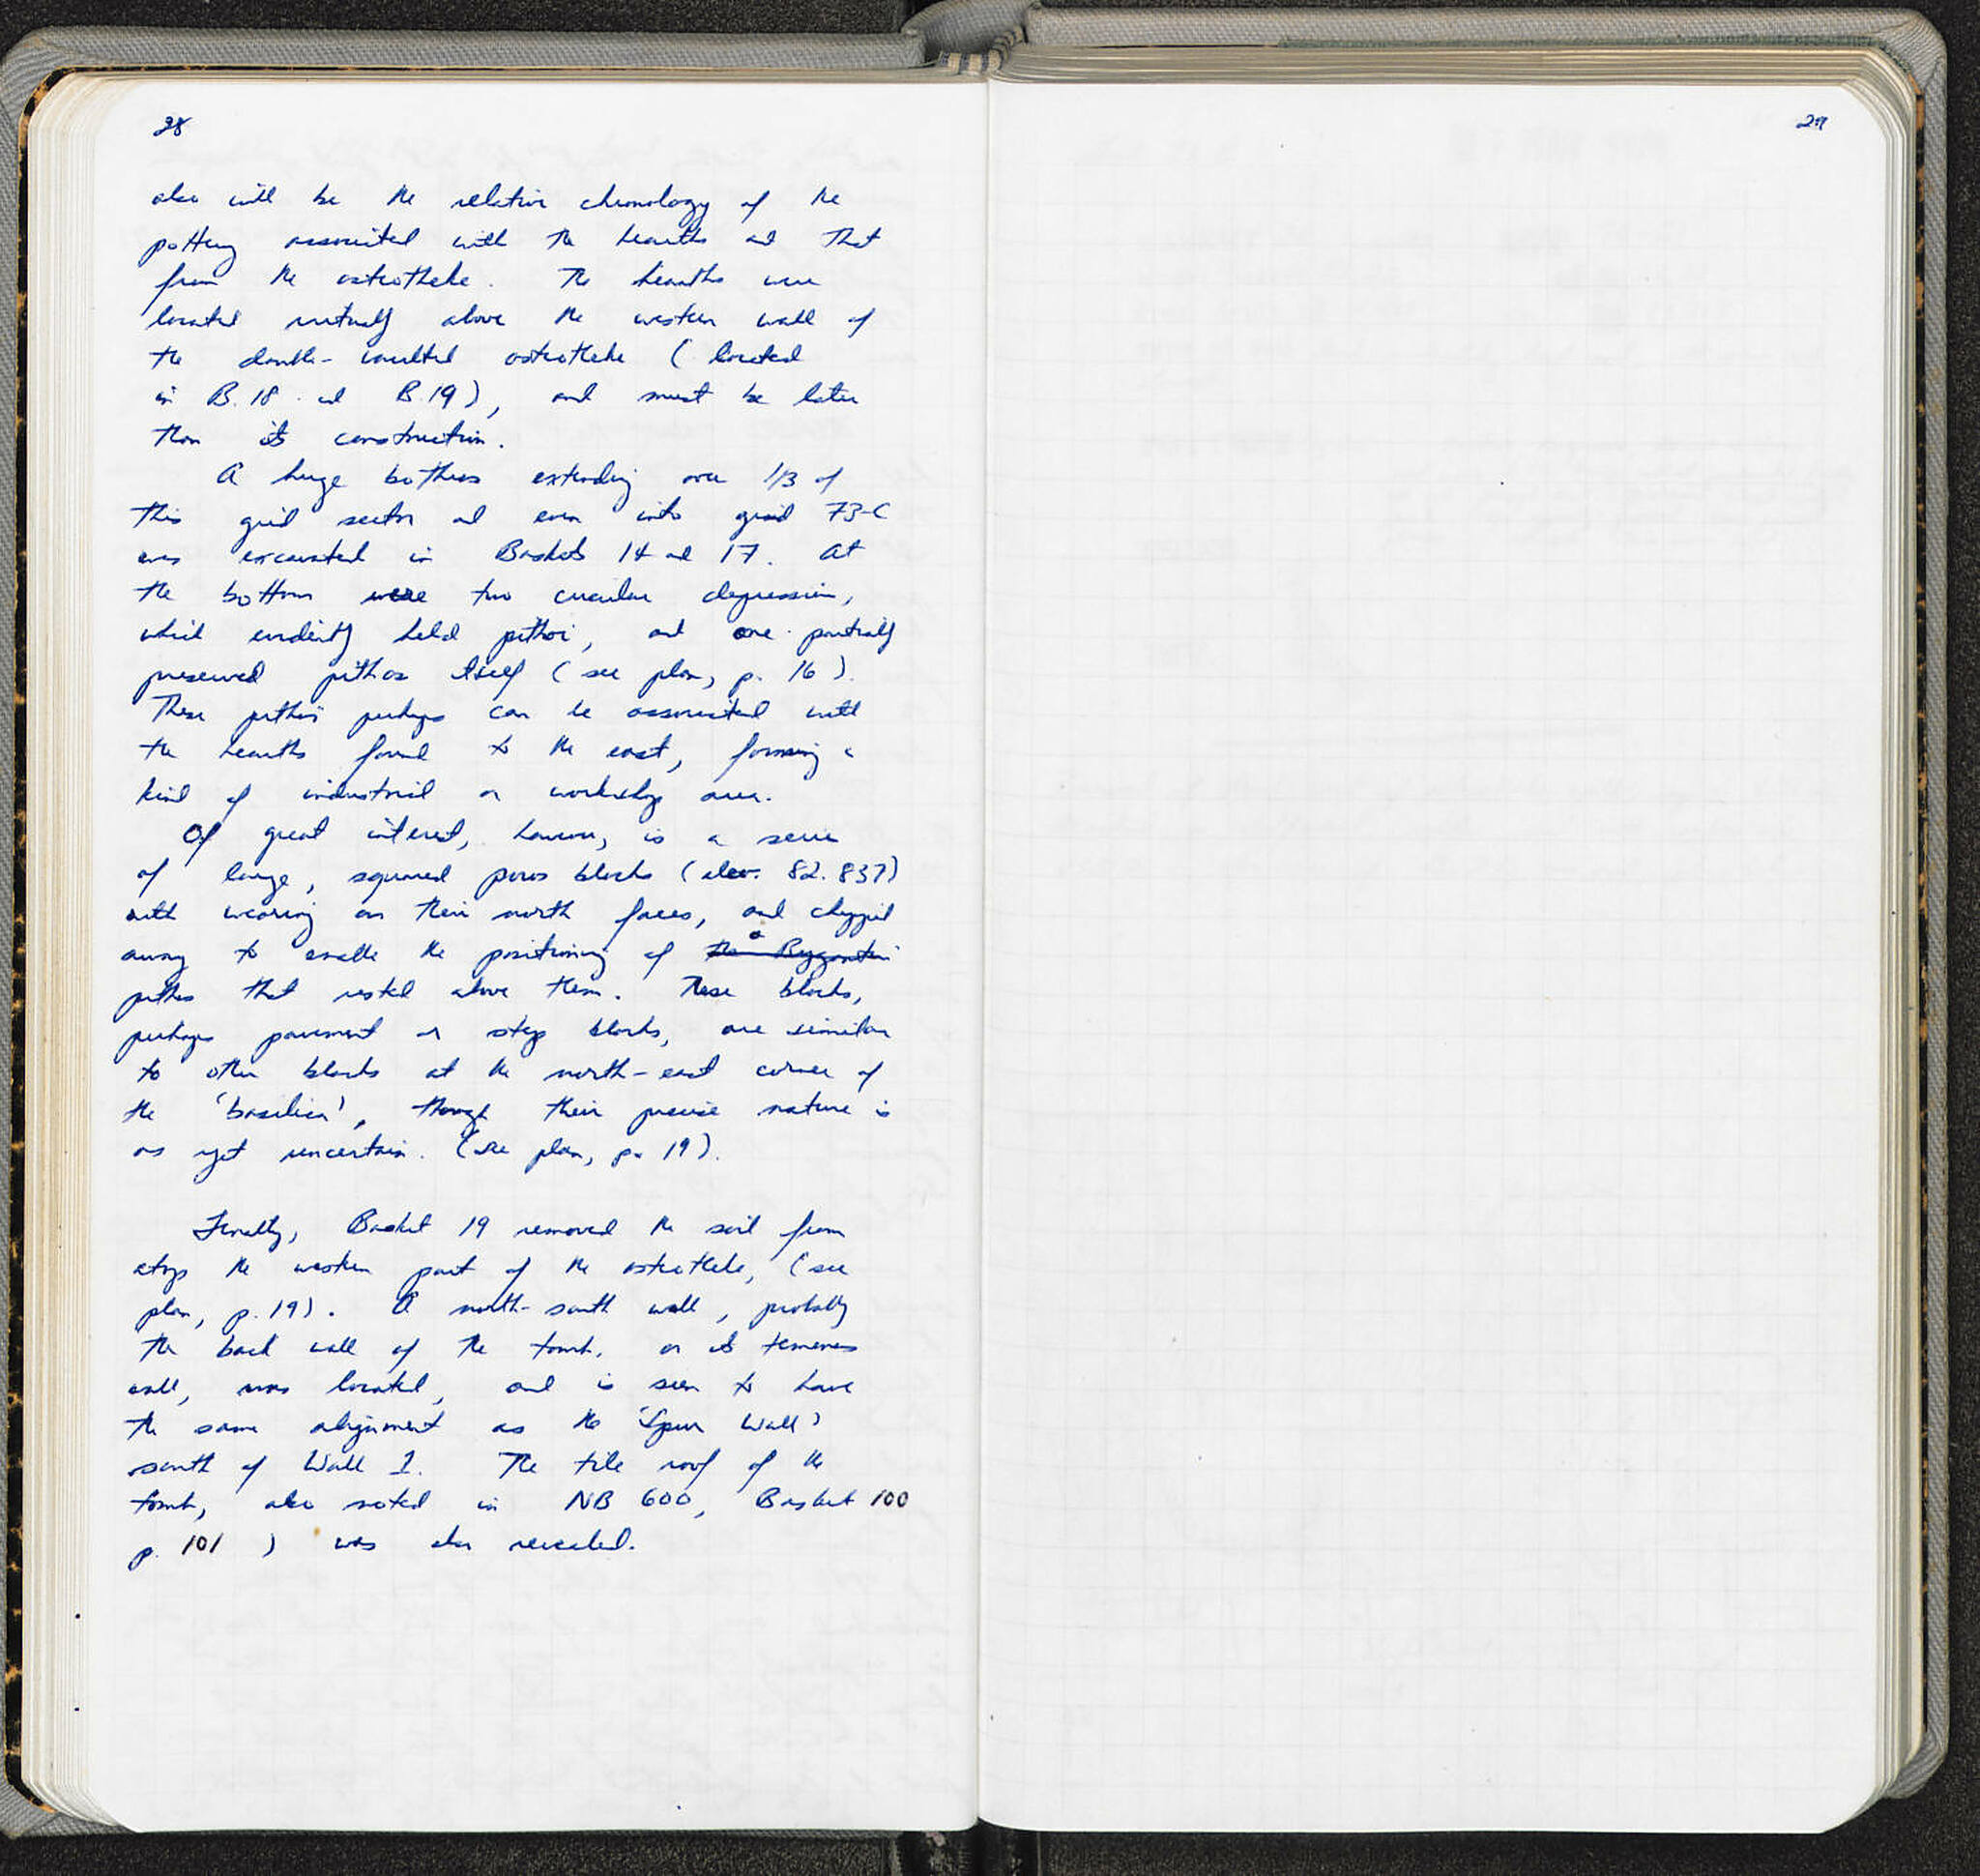 28
also will be the relative chronology of the
pottery associated with the hearths and that
from the osteotheke. The hearths were
located virtually above the western wall of
the double-vaulted osteotheke (located
in B.18 and B.19), and must be later
than its construction.
A huge bothros extending over 1/3 of
this grid sector and even into grid 73-C
was excavated in Baskets 14 and 17. At
the bottom were two circular depression,
which evidently held pithoi, and one partially
preserved pithos itself (see plan, p. 16).
These pithoi perhaps can be associated with
the hearths found to the east, forming a
kind of industrial or workshop area.
Of great interest, however, is a series
of large, squared poros blocks (elev. 82.837)
with wearing on their north faces, and chipped
away to enable the positioning of the Byzantine a
pithos that rested above them. These blocks,
perhaps pavement or step blocks, are similar
to other blocks at the north-east corner of
the 'basilica', though their precise nature is
as yet uncertain. (see plan, p. 19).
Finally, Basket 19 removed the soil from
atop the western part of the osteotheke, (see
plan, p. 19). A north-south wall, probably
the back wall of the tomb, or its temenos
wall, was located, and is seen to have
the same alignment as the 'Spur Wall'
south of Wall 1. The tile roof of the
tomb, also noted in NB 600, Basket 100
p. 101 ) was also revealed.
29